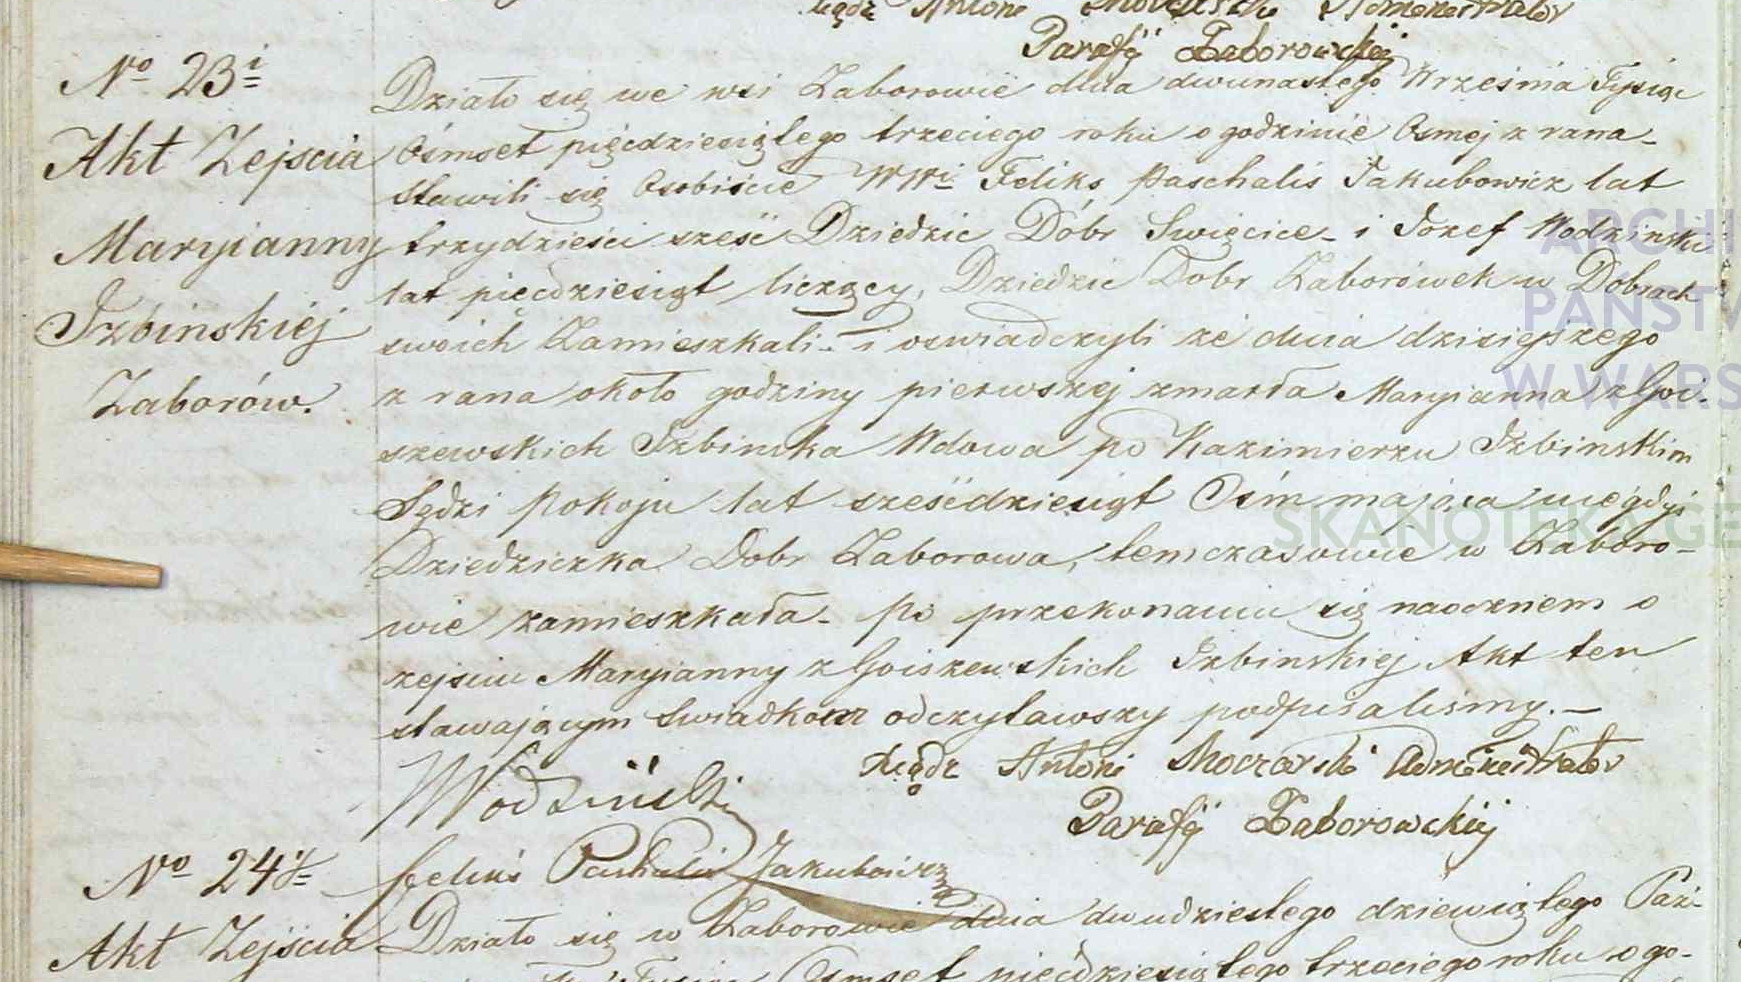 Ksiądz Antoni Administrator
Parafÿ Zaborowskiej
No 23i
Akt Zejscia
Maryianny
Izbinskiéj
Zaborów.
Działo się we wsi Zaborowie dnia dwunastego Września Tysiąc
Ośmset pięćdziesiątego trzeciego roku o godzinie Osmej z rana
Stawili się Osobiście WWi Feliks Paschalis Jakubowicz lat
trzydzieści sześć Dziedzic Dóbr Swięcice i Jozef Wodzinski
lat pięcdziesiąt liczący, Dziedzic Dobr Zaborówek w Dobrach
swoich Zamieszkali i oswiadczyli że dnia dzisiejszego
z rana około godziny pierwszej zmarła Maryianna z Goi-
szewskich Izbinska Wdowa po Kazimierzu Izbinskim
Sędzi pokoju lat sześćdziesiąt Ośm mająca niegdyś
Dziedziczka Dobr Zaborowa, temczasowie w Zaboro-
wie zamieszkała. po przekonaniu się naocznem o
zejsciu Maryianny z Goiszewskich Izbinskiej Akt ten
stawającym Swiadkom odczytawszy podpisaliśmy.—
Ksiądz Antoni Moczarski Administrator
Parafÿ Zaborowskiéj
Wodziński
Feliks Paschalis Jakubowicz
No 24y
Akt Zejścia
Działo się w Zaborowie dnia dwudziestego dziewiątego Paź-
Ośmset pięćdziesiątego trzeciego roku o go-
ARCHI
PAŃSTW
W WARS
SKANOTEKA GE